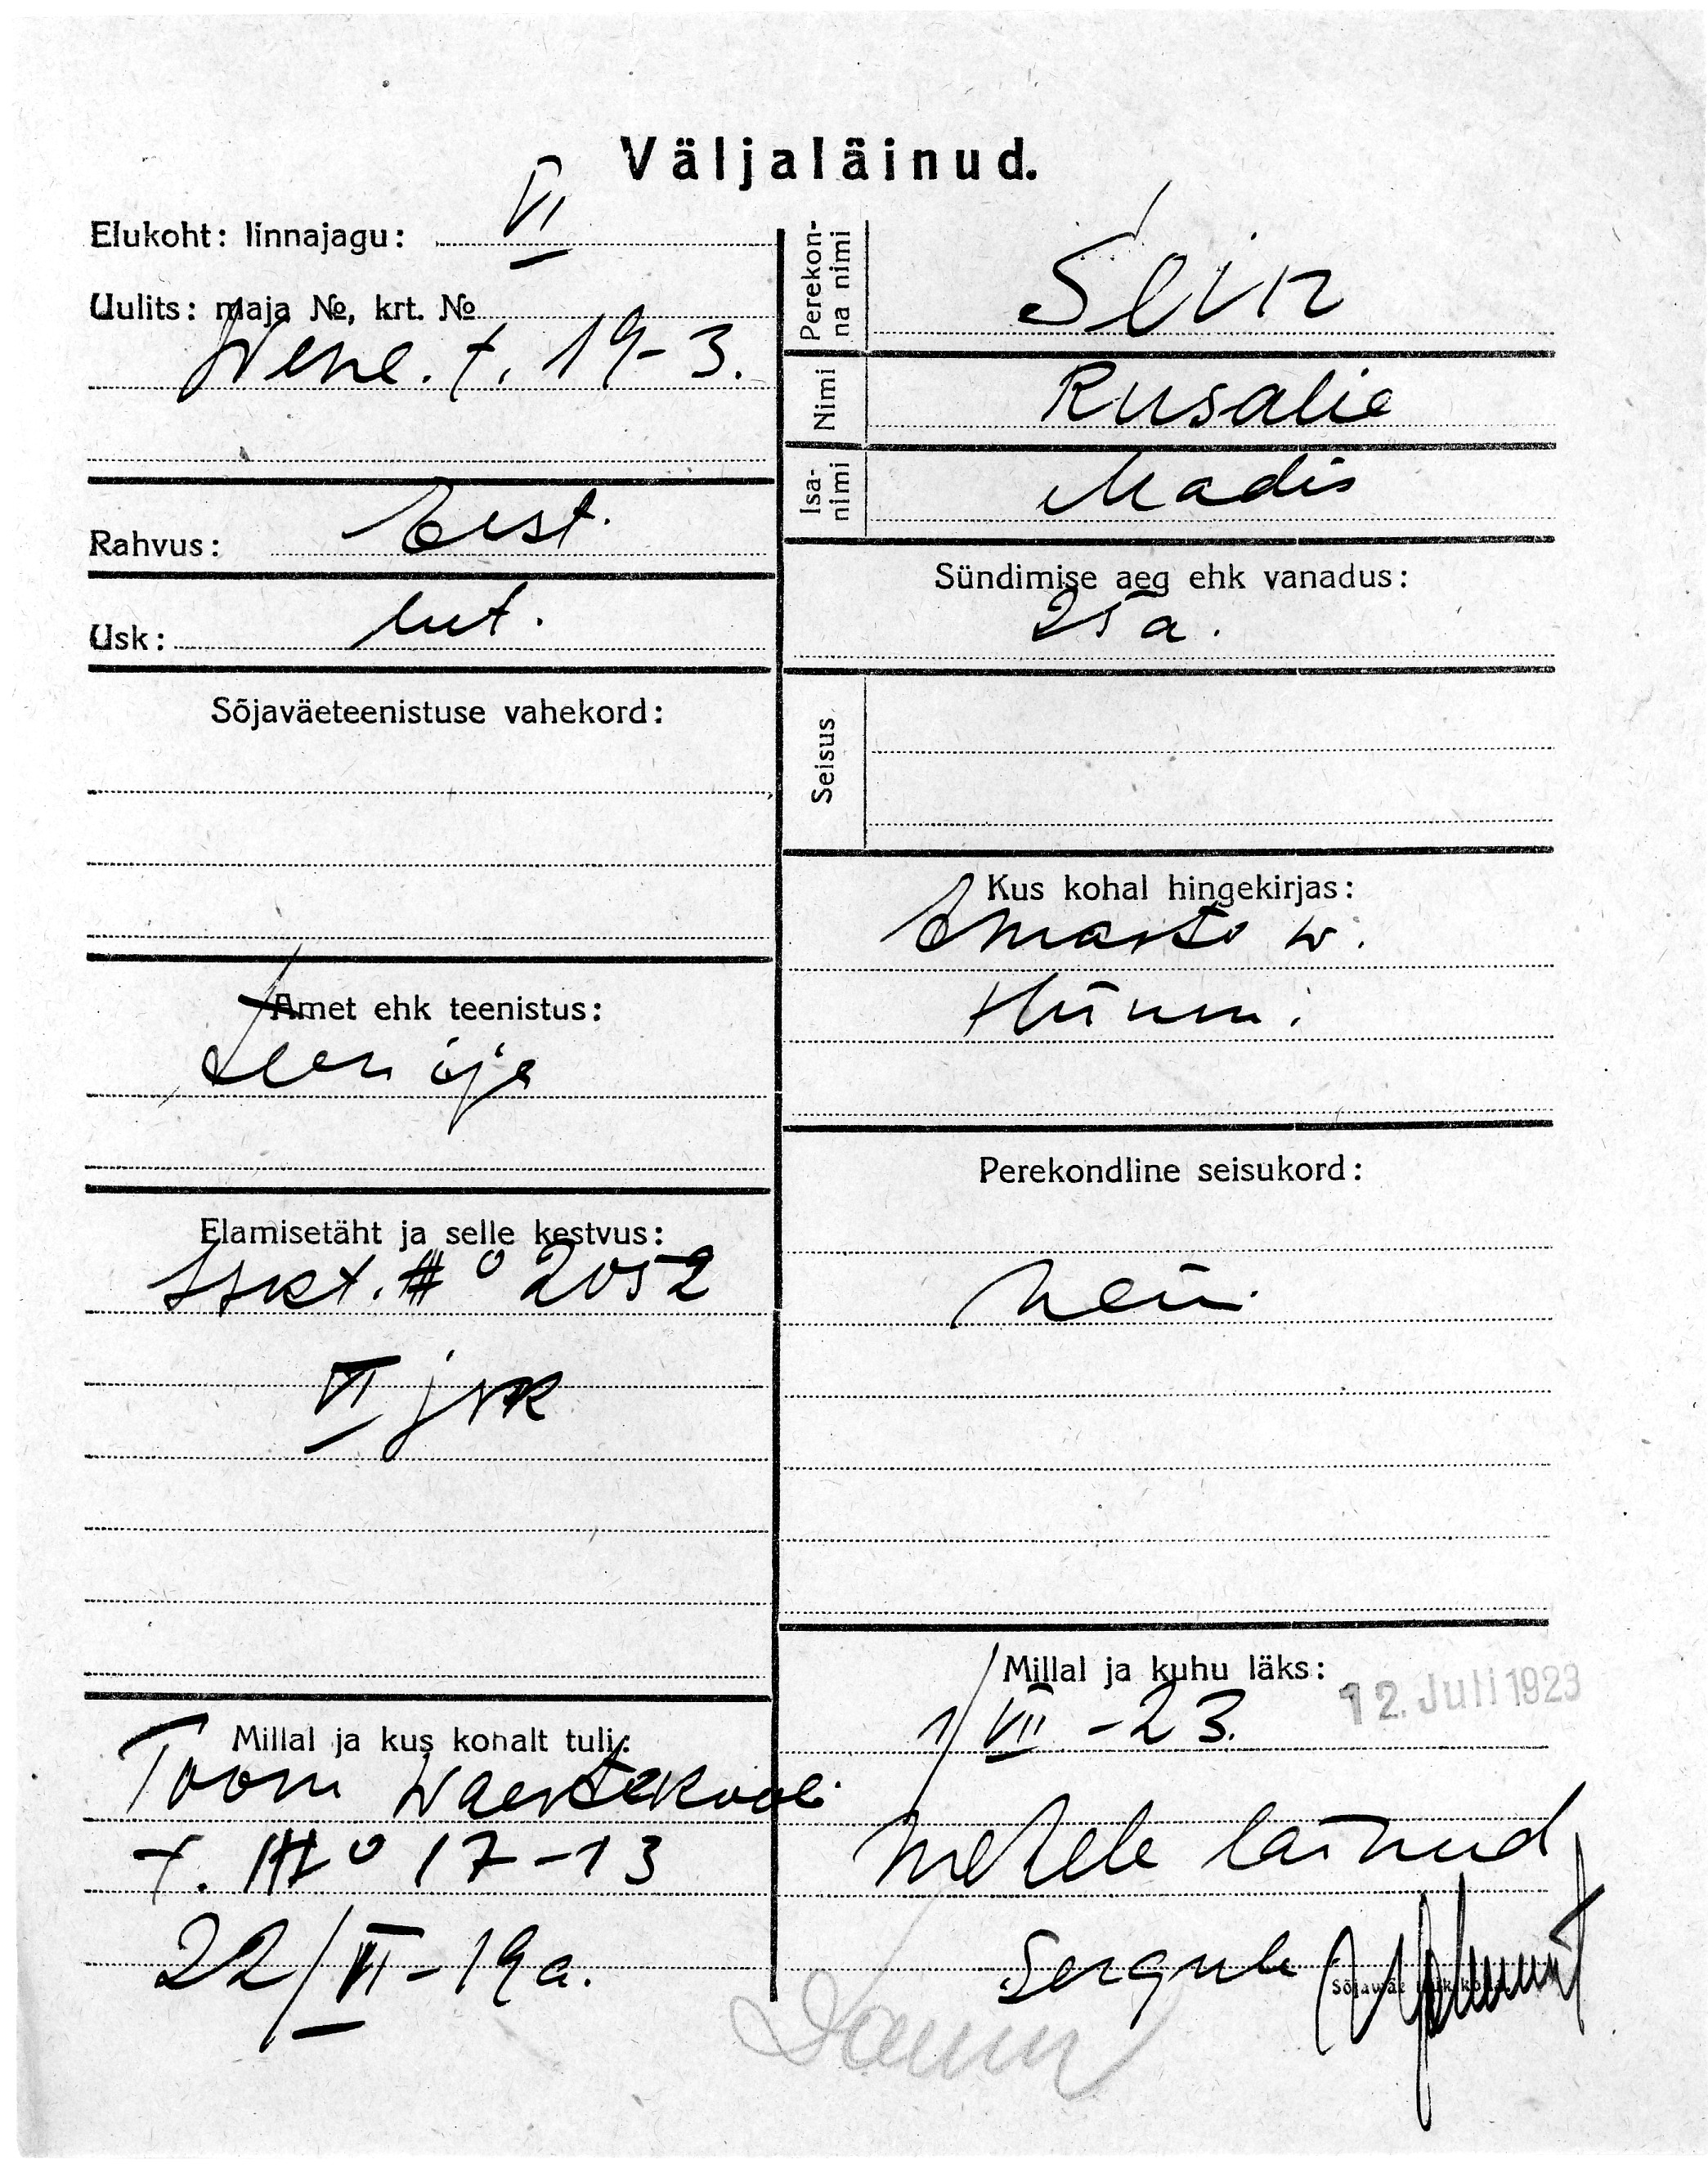 Väljaläinud.
Elukoht: linnajagu: VI
Uulits: maja №, krt. №
Wene. t. 19-3.
Rahvus: Eest.
Usk: lut.
Sõjaväeteenistuse vahekord:
Amet ehk teenistus:
teenija
Elamisetäht ja selle kestvus:
№ 2052
VI jsk
Millal ja kus kohalt tuli:
Toom Waestekooli
t. № 17-13
22/VI-19a.
Perekonna nimi
Sein
Nimi
Rusalie
Isanimi
Madis
Sündimise aeg ehk vanadus:
25 a.
Seisus
Kus kohal hingekirjas:
Emasto w.
Hiium.
Perekondline seisukord:
neiu
Millal ja kuhu läks:
12. Juli 1923
1/VII-23.
Mehele läinud